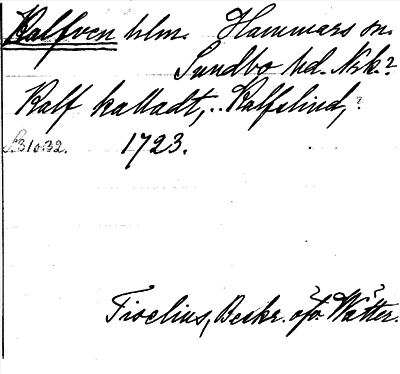 Kalfven hlm. Hammars sn.
Sundbo hd. Nrk.?
Kalf kalladt, .. Kalfslind, ?
S.310.32. 1723.
Tiselius, Beskr. öfv. Wätter.